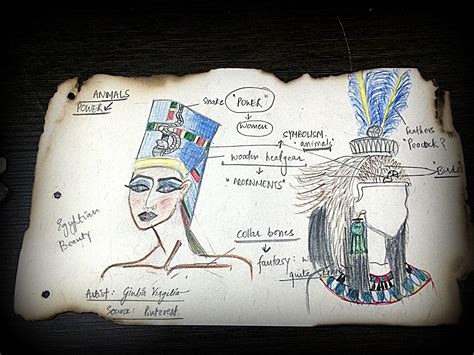 ANIMALS
POWER
Snake "POWER"
women
SYMBOLISM
"animals"
wooden headgear
"ADORNMENTS"
Feathers
"Peacock?
"Birds"
Egyptian
Beauty
collar bones
fantasy:
quite
Artist:
Source: Pinterest